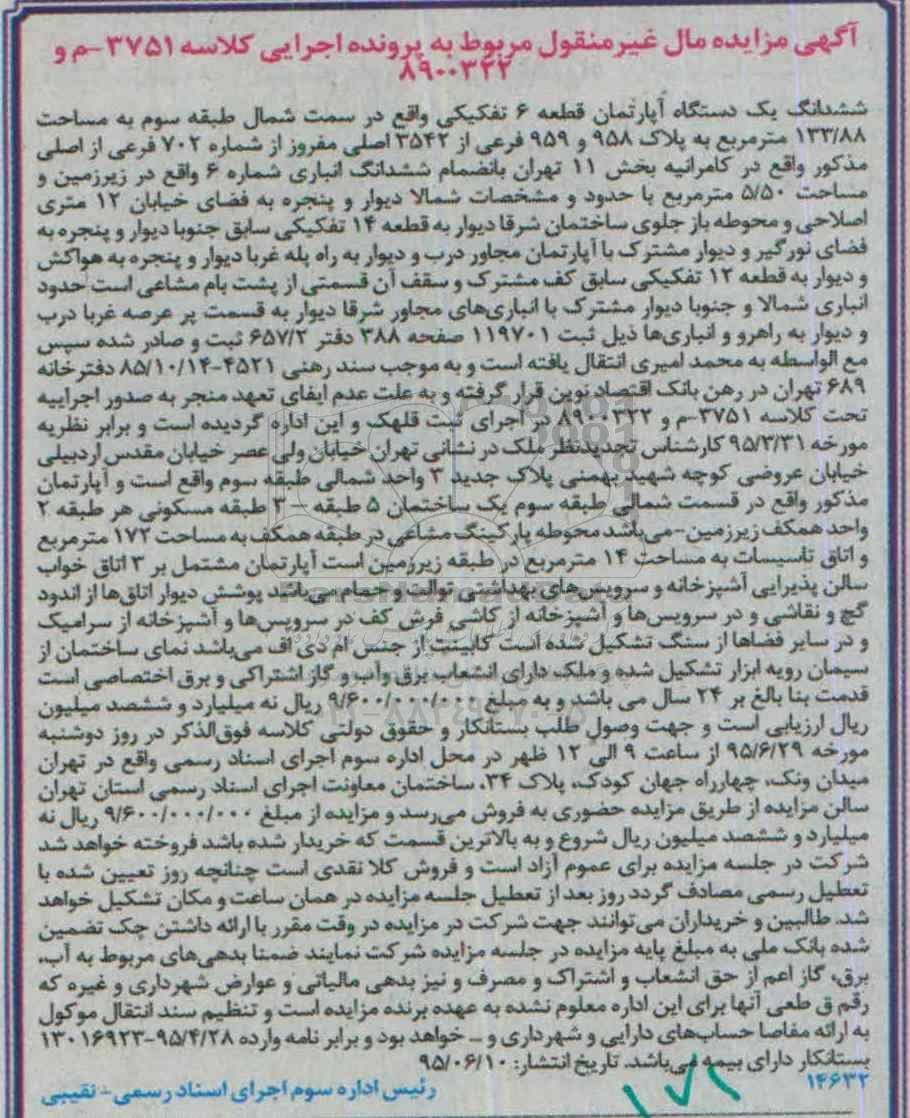 آگهی مزایده مال غیرمنقول مربوط به پرونده اجرایی کلاسه ۳۷۵۱-م و
۸۹۰۰۳۲۲
ششدانگ یک دستگاه آپارتمان قطعه ۶ تفکیکی واقع در سمت شمال طبقه سوم به مساحت
۱۳۳/۸۸ مترمربع به پلاک ۹۵۸ و ۹۵۹ فرعی از ۳۵۴۲ اصلی مفروز از شماره ۷۰۲ فرعی از اصلی
مذکور واقع در کامرانیه بخش ۱۱ تهران بانضمام ششدانگ انباری شماره ۶ واقع در زیرزمین و
مساحت ۵/۵۰ مترمربع با حدود و مشخصات شمالا دیوار و پنجره به فضای خیابان ۱۲ متری
اصلاحی و محوطه باز جلوی ساختمان شرقا دیوار به قطعه ۱۴ تفکیکی سابق جنوبا دیوار و پنجره به
فضای نورگیر و دیوار مشترک با آپارتمان مجاور درب و دیوار به راه پله غربا دیوار و پنجره به هواکش
و دیوار به قطعه ۱۲ تفکیکی سابق کف مشترک و سقف آن قسمتی از پشت بام مشاعی است حدود
انباری شمالا و جنوبا دیوار مشترک با انباری‌های مجاور شرقا دیوار به قسمت پر عرصه غربا درب
و دیوار به راهرو و انباری‌ها ذیل ثبت ۱۱۹۷۰۱ صفحه ۳۸۸ دفتر ۶۵۷/۲ ثبت و صادر شده سپس
مع الواسطه به محمد امیری انتقال یافته است و به موجب سند رهنی ۴۵۲۱-۸۵/۱۰/۱۴ دفترخانه
۶۸۹ تهران در رهن بانک اقتصاد نوین قرار گرفته و به علت عدم ایفای تعهد منجر به صدور اجراییه
تحت کلاسه ۳۷۵۱-م و ۸۹۰۰۳۲۲ در اجرای ثبت قلهک و این اداره گردیده است و برابر نظریه
مورخه ۹۵/۳/۳۱ کارشناس تجدیدنظر ملک در نشانی تهران خیابان ولی عصر خیابان مقدس اردبیلی
خیابان عروضی کوچه شهید بهمنی پلاک جدید ۳ واحد شمالی طبقه سوم واقع است و آپارتمان
مذکور واقع در قسمت شمالی طبقه سوم یک ساختمان ۵ طبقه – ۳ طبقه مسکونی هر طبقه ۲
واحد همکف زیرزمین-می‌باشد محوطه پارکینگ مشاعی در طبقه همکف به مساحت ۱۷۲ مترمربع
و اتاق تاسیسات به مساحت ۱۴ مترمربع در طبقه زیرزمین است آپارتمان مشتمل بر ۳ اتاق خواب
سالن پذیرایی آشپزخانه و سرویس‌های بهداشتی توالت و حمام می‌باشد پوشش دیوار اتاق‌ها از اندود
گچ و نقاشی و در سرویس‌ها و آشپزخانه از کاشی فرش کف در سرویس‌ها و آشپزخانه از سرامیک
و در سایر فضاها از سنگ تشکیل شده است کابینت از جنس ام دی اف می‌باشد نمای ساختمان از
سیمان رویه ابزار تشکیل شده و ملک دارای انشعاب برق وآب و گاز اشتراکی و برق اختصاصی است
قدمت بنا بالغ بر ۲۴ سال می باشد و به مبلغ ۹/۶۰۰/۰۰۰/۰۰۰ ریال نه میلیارد و ششصد میلیون
ریال ارزیابی است و جهت وصول طلب بستانکار و حقوق دولتی کلاسه فوق‌الذکر در روز دوشنبه
مورخه ۹۵/۶/۲۹ از ساعت ۹ الی ۱۲ ظهر در محل اداره سوم اجرای اسناد رسمی واقع در تهران
میدان ونک، چهارراه جهان کودک، پلاک ۳۴، ساختمان معاونت اجرای اسناد رسمی استان تهران
سالن مزایده از طریق مزایده حضوری به فروش می‌رسد و مزایده از مبلغ ۹/۶۰۰/۰۰۰/۰۰۰ ریال نه
میلیارد و ششصد میلیون ریال شروع و به بالاترین قسمت که خریدار شده باشد فروخته خواهد شد
شرکت در جلسه مزایده برای عموم آزاد است و فروش کلا نقدی است چنانچه روز تعیین شده با
تعطیل رسمی مصادف گردد روز بعد از تعطیل جلسه مزایده در همان ساعت و مکان تشکیل خواهد
شد. طالبین و خریداران می‌توانند جهت شرکت در مزایده در وقت مقرر با ارائه داشتن چک تضمین
شده بانک ملی به مبلغ پایه مزایده در جلسه مزایده شرکت نمایند ضمنا بدهی‌های مربوط به آب،
برق، گاز اعم از حق انشعاب و اشتراک و مصرف و نیز بدهی مالیاتی و عوارض شهرداری و غیره که
رقم ق طعی آنها برای این اداره معلوم نشده به عهده برنده مزایده است و تنظیم سند انتقال موکول
به ارائه مفاصا حساب‌های دارایی و شهرداری و ... خواهد بود و برابر نامه وارده ۹۵/۴/۲۸-۱۳۰۱۶۹۲۳
بستانکار دارای بیمه می‌باشد. تاریخ انتشار: ۹۵/۰۶/۱۰
۱۴۶۳۲
رئیس اداره سوم اجرای اسناد رسمی - نقیبی
۱۷۱